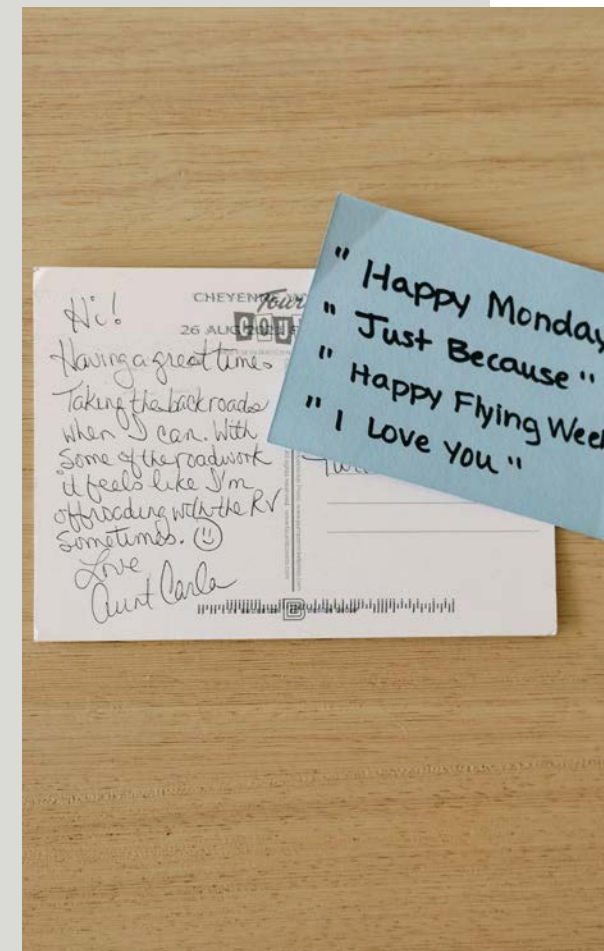 Hi!
Having a great time.
Taking the back roads
when I can. With
some of the roadwork
it feels like I'm
offroading with the RV
sometimes.
Love
Aunt Carla
CHEYEN
26 AUG
" Happy Monday
" Just Because "
" Happy Flying Week
" I Love You "